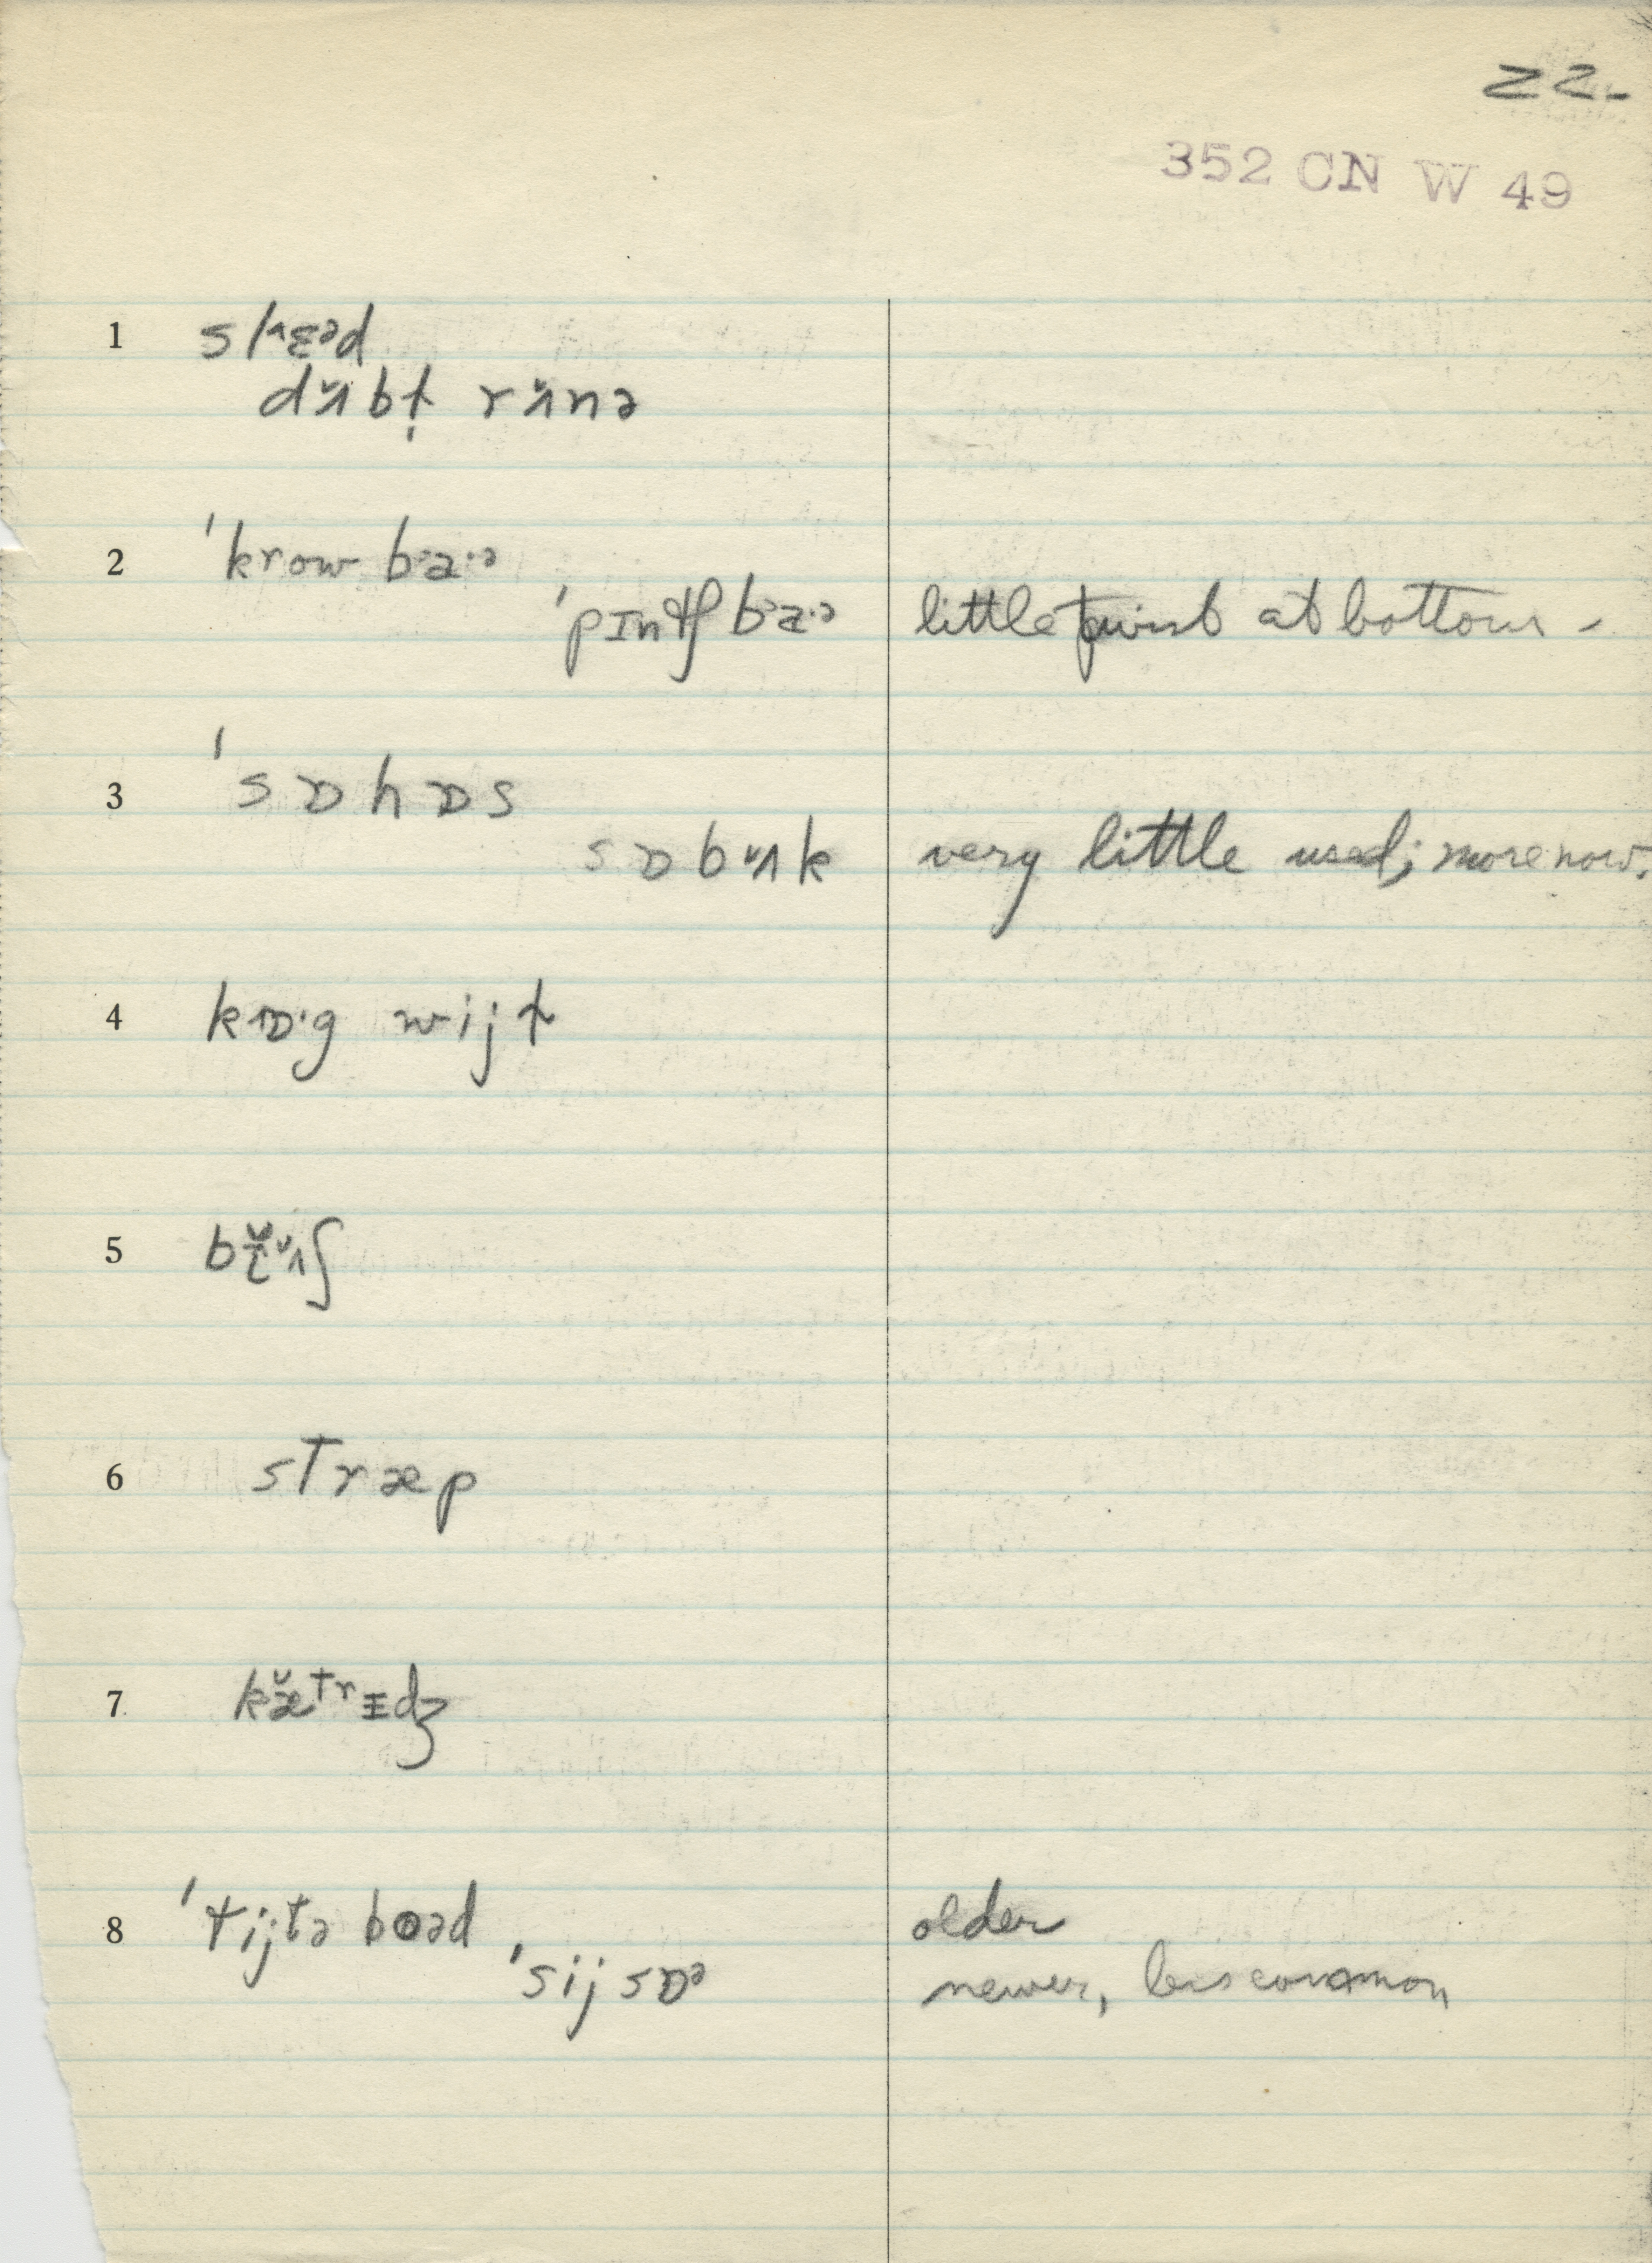 22-
352 CN W 49
1 sl^ɛəd
dʌ̆bt̩ rʌ̆nə
2 'krow bᵊa·ᵊ
'pɪntʃ baᵊ·ᵊ little point at bottom -
3 'sɒhɒs
sɒbʌ̆k very little used; more now.
4 kɒ·g wijt
6 stræp
7 kæ̆trɪdʒ
8 'tijtə boəd older
'sijsɒᵊ newer, less common